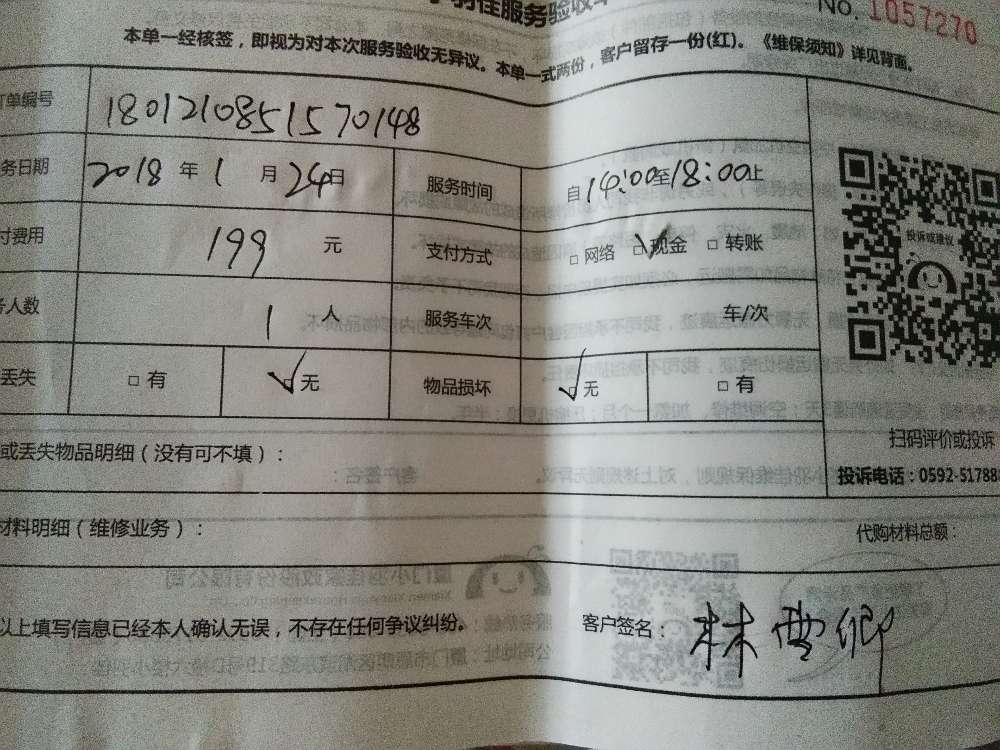 羽佳服务验收单
No. 1057270
本单一经核签，即视为对本次服务验收无异议。本单一式两份，客户留存一份(红)。《维保须知》详见背面。
订单编号 1801210851570148
务日期 2018 年 1 月 24日 服务时间 自 14:00至18:00止
付费用 199 元 支付方式 □ 网络 □ 现金 □ 转账
务人数 1 人 服务车次 车/次
丢失 □ 有 □ 无 物品损坏 □ 无 □ 有
投诉或建议
扫码评价或投诉
投诉电话：0592-51788
或丢失物品明细（没有可不填）：
材料明细（维修业务）：
代购材料总额：
以上填写信息已经本人确认无误，不存在任何争议纠纷。
客户签名：林 卿